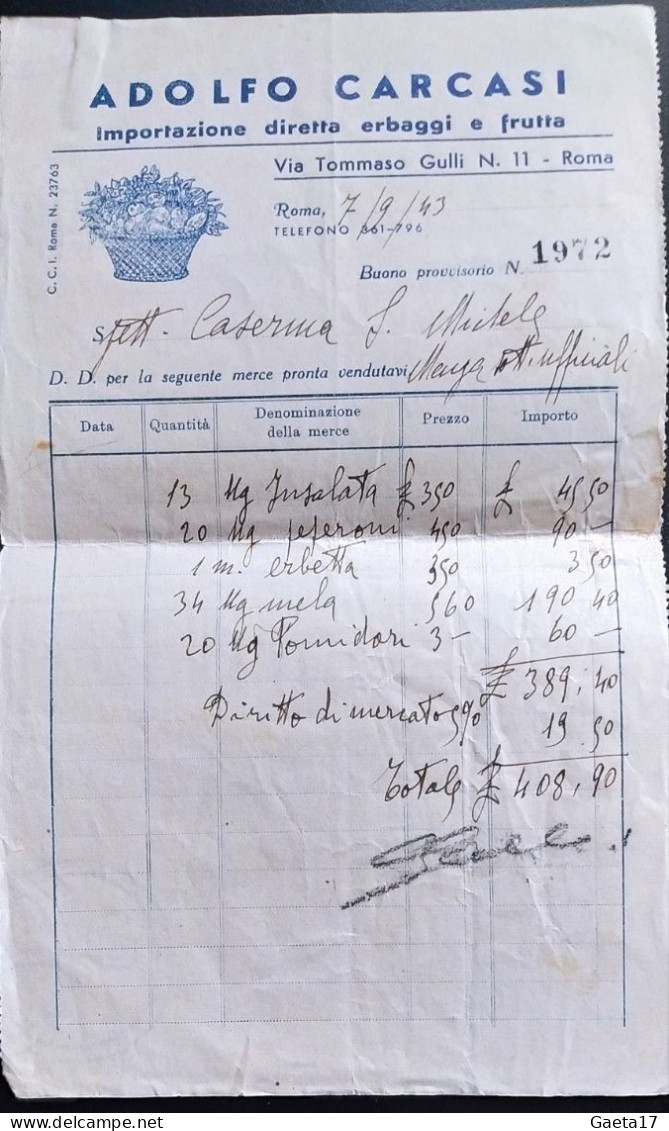 ADOLFO CARCASI
Importazione diretta erbaggi e frutta
Via Tommaso Gulli N. 11 - Roma
C. C. I. Roma N. 23763
Roma, 7/9/43
TELEFONO 361-796
Buono provvisorio N. 1972
Spett. Caserma S. Michele
D. D. per la seguente merce pronta vendutavi ufficiali
Data Quantità Denominazione della merce Prezzo Importo
13 Mg Insalata £ 350 £ 45 50
20 Mg peperoni 450 90 —
1 m. erbetta 350 3 50
34 Mg mela 560 190 40
20 Mg Pomidori 3 — 60 —
£ 389,40
Diritto di mercato 5% 19 50
Totale £ 408,90
Gaeta17